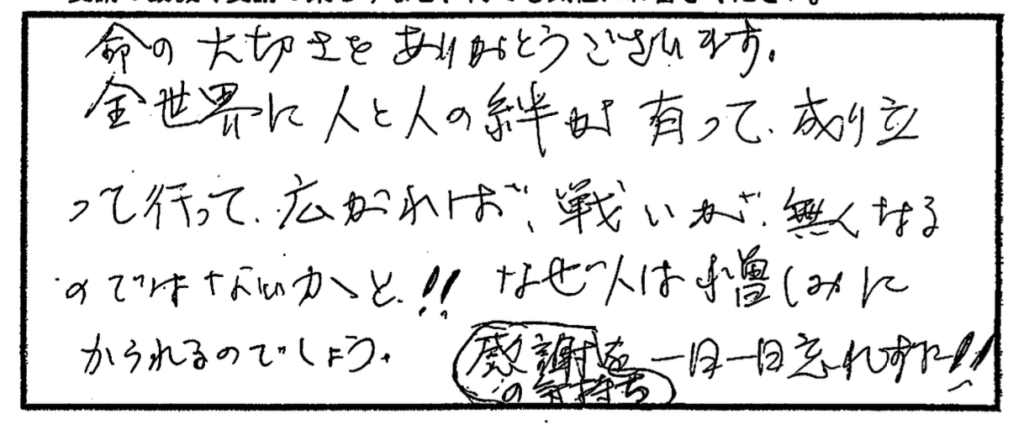 命の大切さをありがとうございます。
全世界に人と人の絆が有って、成り立
って行って、広がれば、戦いが、無くなる
のではないかと、!!なぜ人は憎しみに
かられるのでしょう。感謝を一日一日忘れずに!!
の気持ち